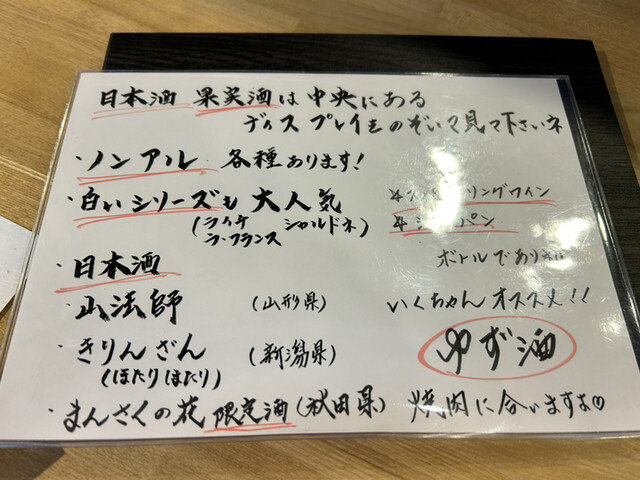 日本酒 果実酒は中央にある
ディスプレイをのぞいて見て下さいネ
・ノンアル 各種あります!
・白いシリーズも大人気
(ライチ シャルドネ)
ラ・フランス
リングワイン
パン
ボトルであり
・日本酒
・山法師 (山形県)
いくちゃんオススメ!!
・きりんざん (新潟県)
(ほたりほたり)
ゆず酒
・まんさくの花 限定酒 (秋田県) 焼肉に合いますよ♡